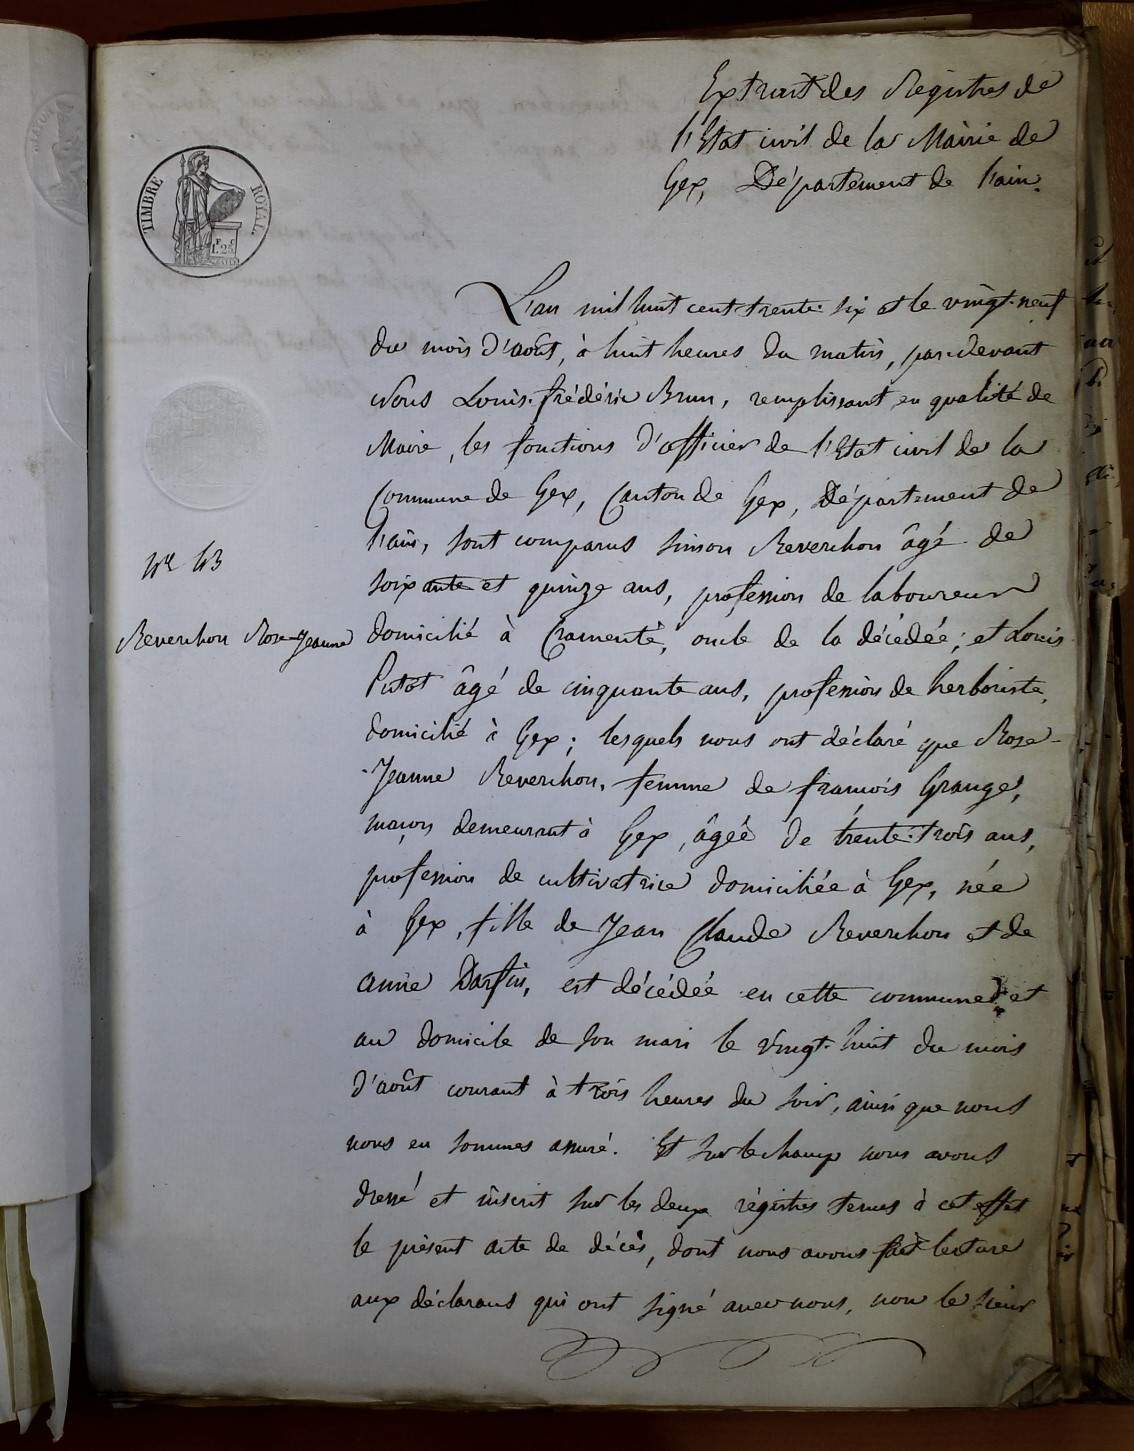 Extrait des Régistres de
l'Etat civil de la Mairie de
Gex, Département de l'ain.
TIMBRE ROYAL.
L'an mil huit cent trente-six et le vingt-neuf
du mois d'août, à huit heures du matin, par-devant
Nous Louis-frédéric Brun, remplissant en qualité de
Maire, les fonctions d'officier de l'Etat civil de la
Commune de Gex, Canton de Gex, Département de
l'ain, sont comparus Simon Reverchon âgé de
soixante et quinze ans, profession de laboureur
domicilié à Cramenté, oncle de la décédée; et Louis
Putot âgé de cinquante ans, profession de herboriste,
domicilié à Gex; lesquels nous ont déclaré que Rose-
-Jeanne Reverchon, femme de françois Grange,
maçon demeurant à Gex, âgée de trente-trois ans,
profession de cultivatrice domiciliée à Gex, née
à Gex, fille de Jean Claude Reverchon et de
anne Darfin, est décédée en cette commune et
au domicile de son mari le vingt-huit du mois
d'août courant à trois heures du soir, ainsi que nous
nous en sommes assuré. Et sur le champ nous avons
dressé et inscrit sur les deux régistres tenus à cet effet
le présent acte de décès, dont nous avons fait lecture
aux déclarans qui ont signé avec nous, non le sieur
N° 43
Reverchon Rose-Jeanne